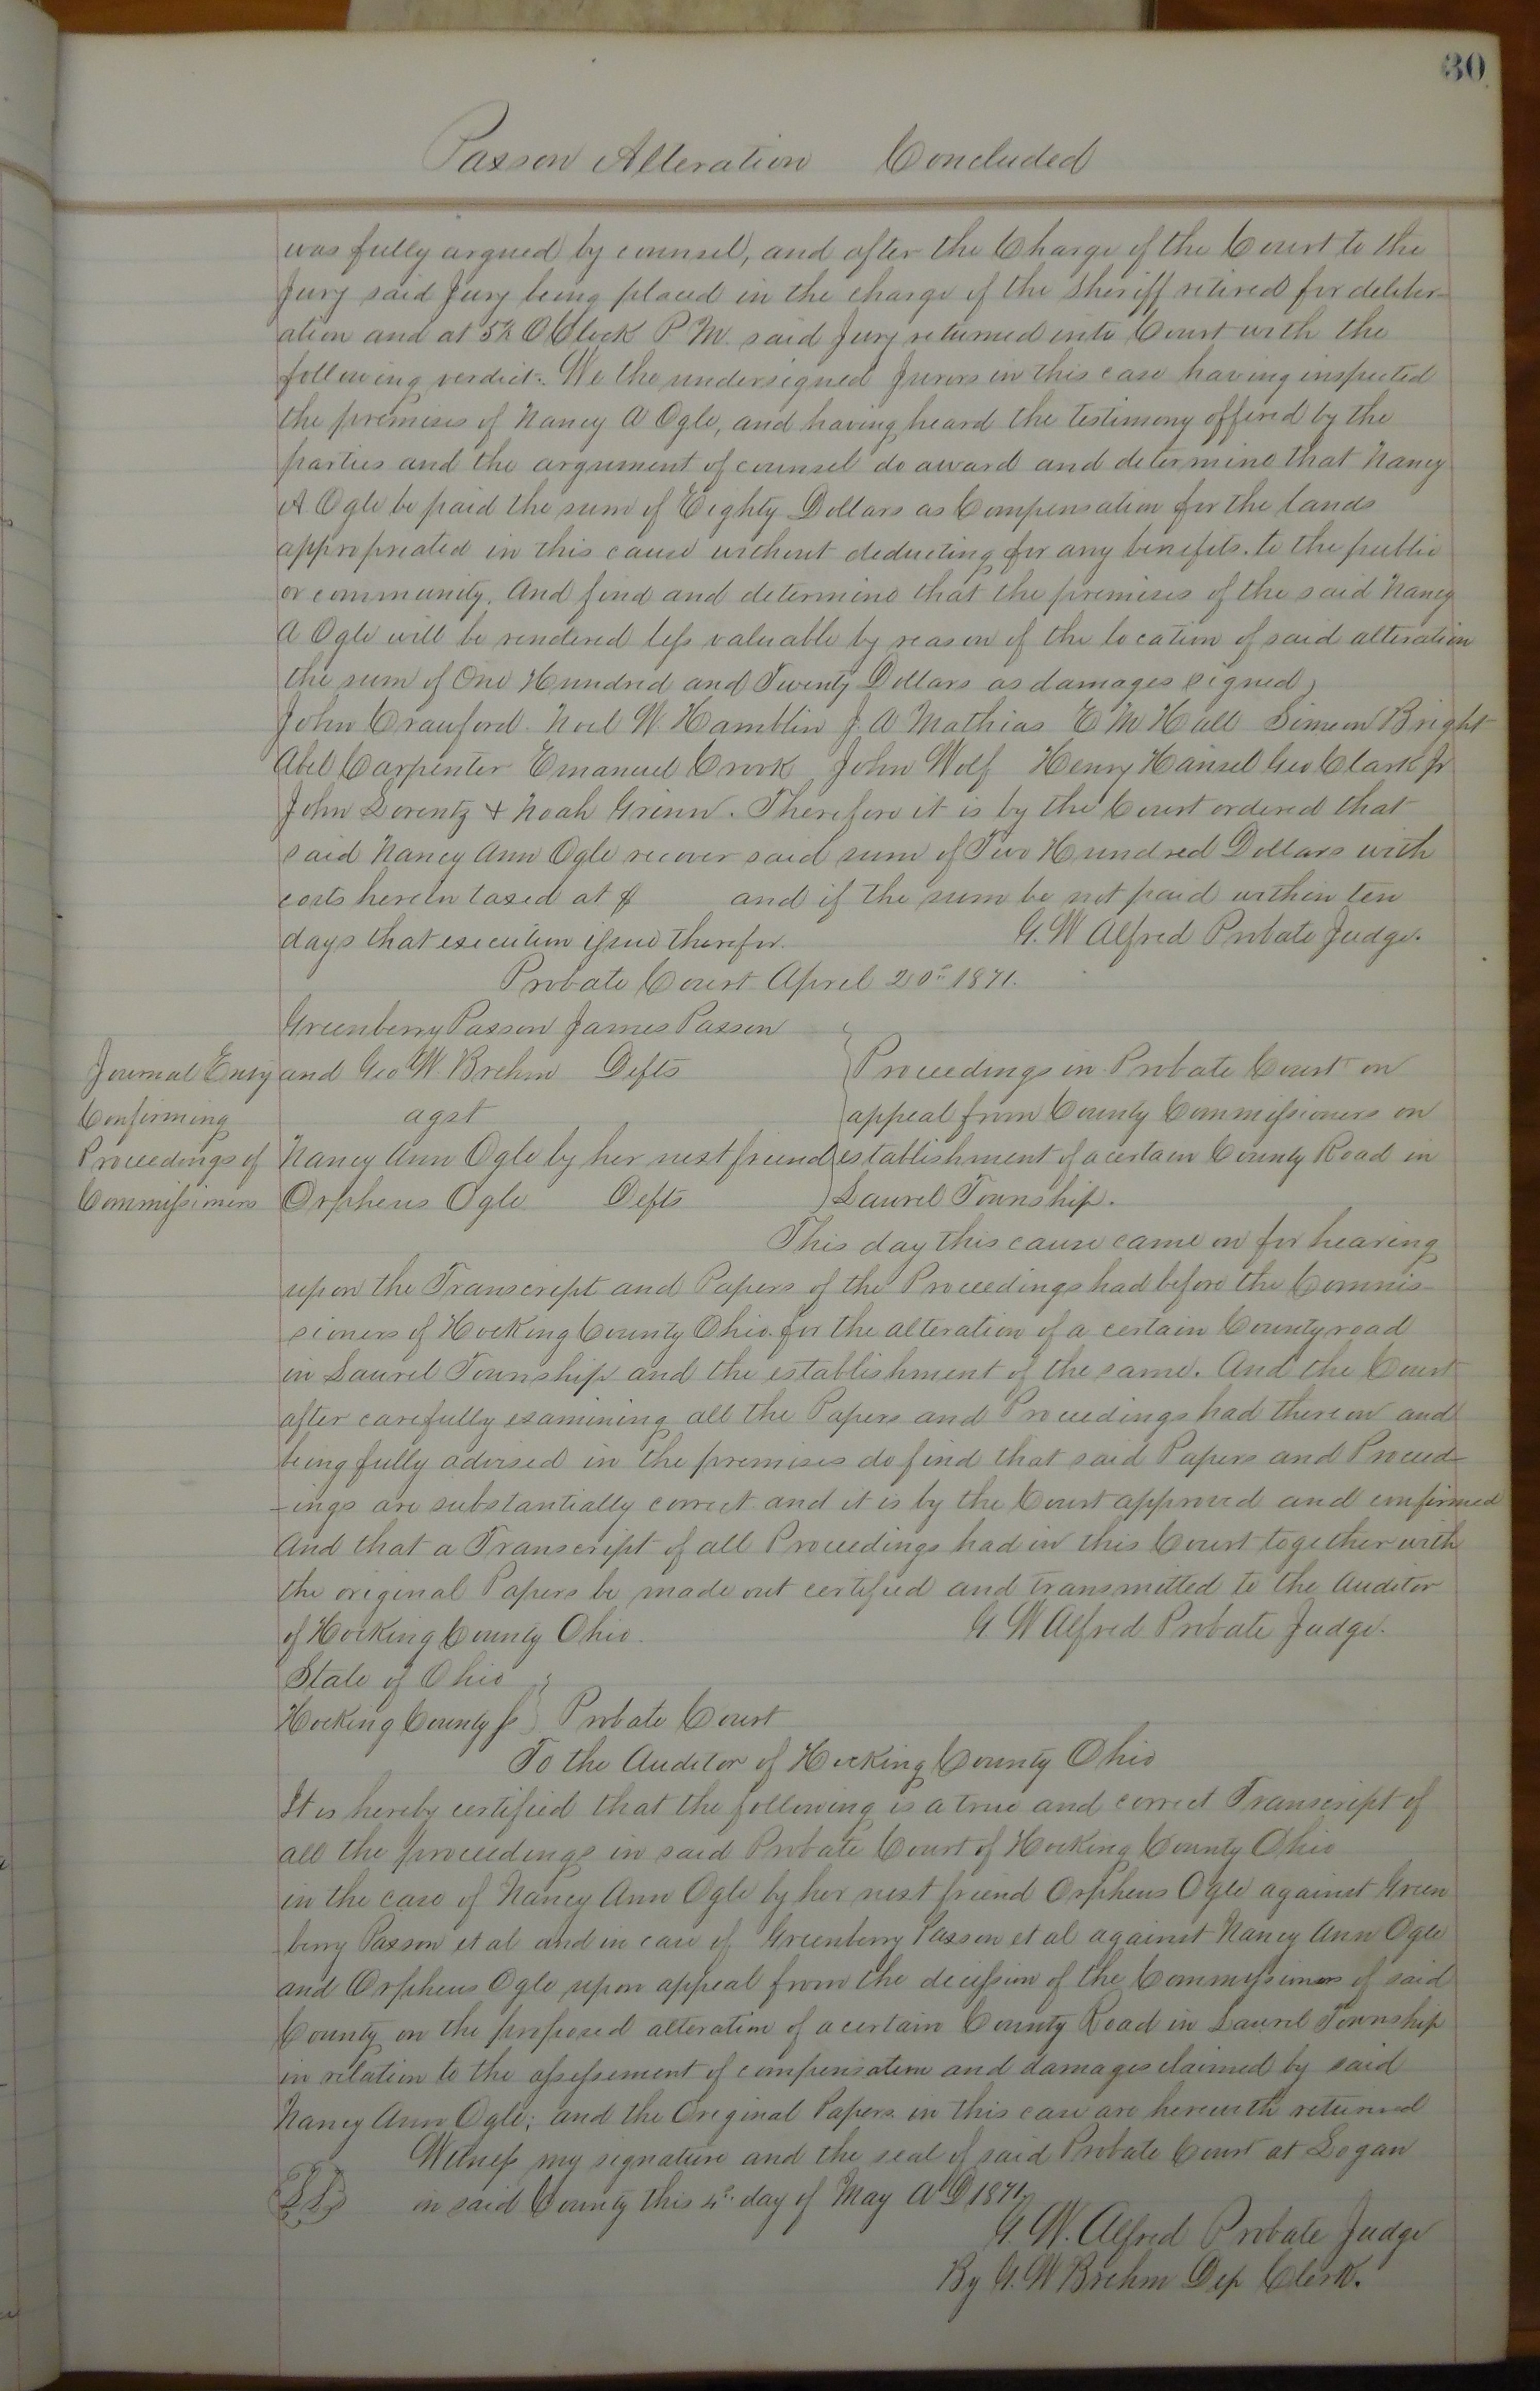 30
Paxson Alteration Concluded
was fully argued by counsel, and after the Charge of the Court to the
Jury said Jury being placed in the charge of the Sheriff retired for deliber-
ation and at 5½ OClock P M. said Jury returned into Court with the
following verdict:. We the undersigned Jurors in this case having inspected
the premises of Nancy A Ogle, and having heard the testimony offered by the
parties and the argument of counsel do award and determine that Nancy
A Ogle be paid the sum of Eighty Dollars as Compensation for the lands
appropreated in this cause without deducting for any benefits. to the public
or community. And find and determine that the premises of the said Nancy
A Ogle will be rendered less valuable by reason of the location of said alteration
the sum of One Hundred and Twenty Dollars as damages signed,
John Crawford. Noel W. Hamblin J. A Mathias E M Hall Simeon Bright
Abel Carpenter Emanuel Crook John Wolf Henry Hansel Geo Clark Jr
John Lorentz + Noah Grinn. Therefore it is by the Court ordered that
said Nancy Ann Ogle recover said sum of Two Hundred Dollars with
costs herein taxed at $ and if the sum be not paid within ten
days that execution issue therefor. G. W Alfred Probate Judge.
Probate Court April 20th 1871.
Greenberry Paxson James Paxson
Journal Entry and Geo W. Brehm Defts Proceedings in Probate Court on
Confirming agst appeal from County Commissioners on
Proceedings of Nancy Ann Ogle by her next friend establishment of a certain County Road in
Commissioners Orpheus Ogle Defts Laurel Township.
This day this cause came on for hearing
upon the Transcript and Papers of the Proceedings had before the Commis-
sioners of Hocking County Ohio. for the alteration of a certain County road
in Laurel Township and the establishment of the same. And the Court
after carefully examining all the Papers and Proceedings had thereon and
being fully advised in the premises do find that said Papers and Proceed-
-ings are substantially correct and it is by the Court approved and confirmed
And that a Transcript of all Proceedings had in this Court together with
the original Papers be made out certified and transmitted to the Auditor
of Hocking County Ohio. G. W Alfred Probate Judge.
State of Ohio
Hocking County ss Probate Court
To the Auditor of Hocking County Ohio
It is hereby certified that the following is a true and correct Transcript of
all the proceedings in said Probate Court of Hocking County Ohio
in the case of Nancy Ann Ogle by her next friend Orpheus Ogle against Green
berry Paxson et al and in case of Greenberry Paxson et al against Nancy Ann Ogle
and Orpheus Ogle upon appeal from the decission of the Commissioners of said
County on the proposed alteration of a certain County Road in Laurel Township
in relation to the assessement of compensation and damages claimed by said
Nancy Ann Ogle; and the Original Papers in this case are herewith returned
Witness my signature and the seal of said Probate Court at Logan
in said County this 4th day of May A D 1871,
G. W. Alfred Probate Judge
By G. W Brehm Dep Clerk.